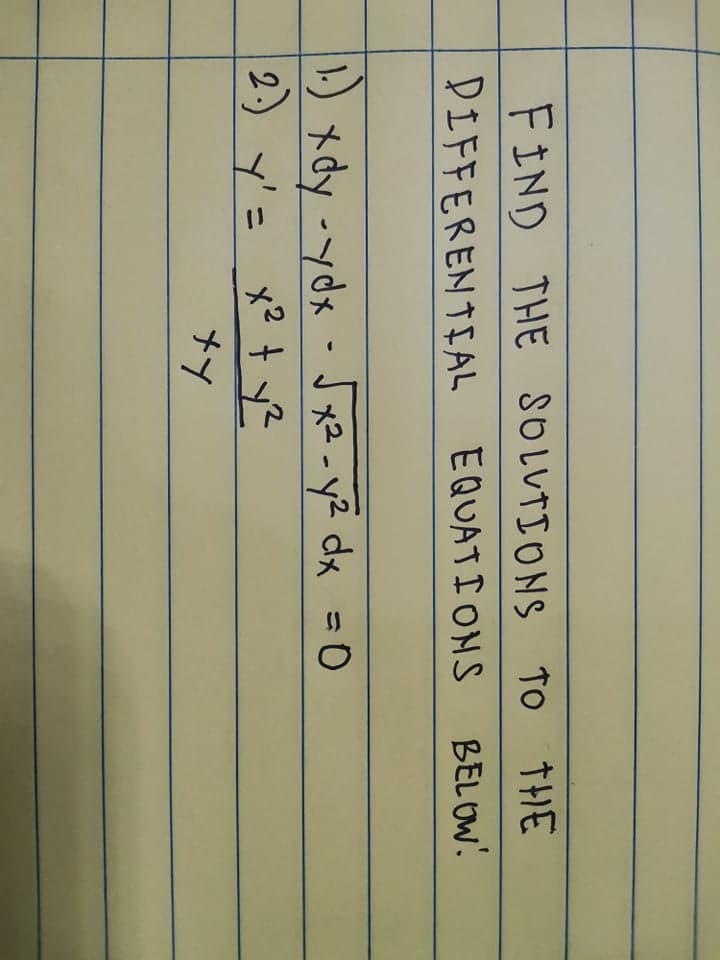 FIND THE SOLUTIONS TO THE
DIFFERENTIAL EQUATIONS BELOW:
1.) xdy - ydx - √x² - y² dx = 0
2.) y' = x² + y²
xy